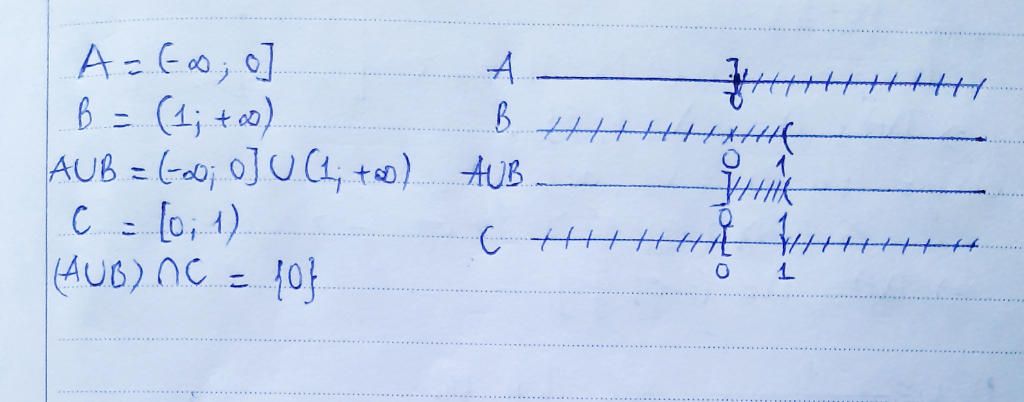 A = (-∞; 0]
B = (1; +∞)
A∪B = (-∞; 0] ∪ (1; +∞)
C = [0; 1)
(A∪B) ∩ C = {0}
A ]
0
B (
0 1
A∪B ] (
0 1
C [ )
0 1